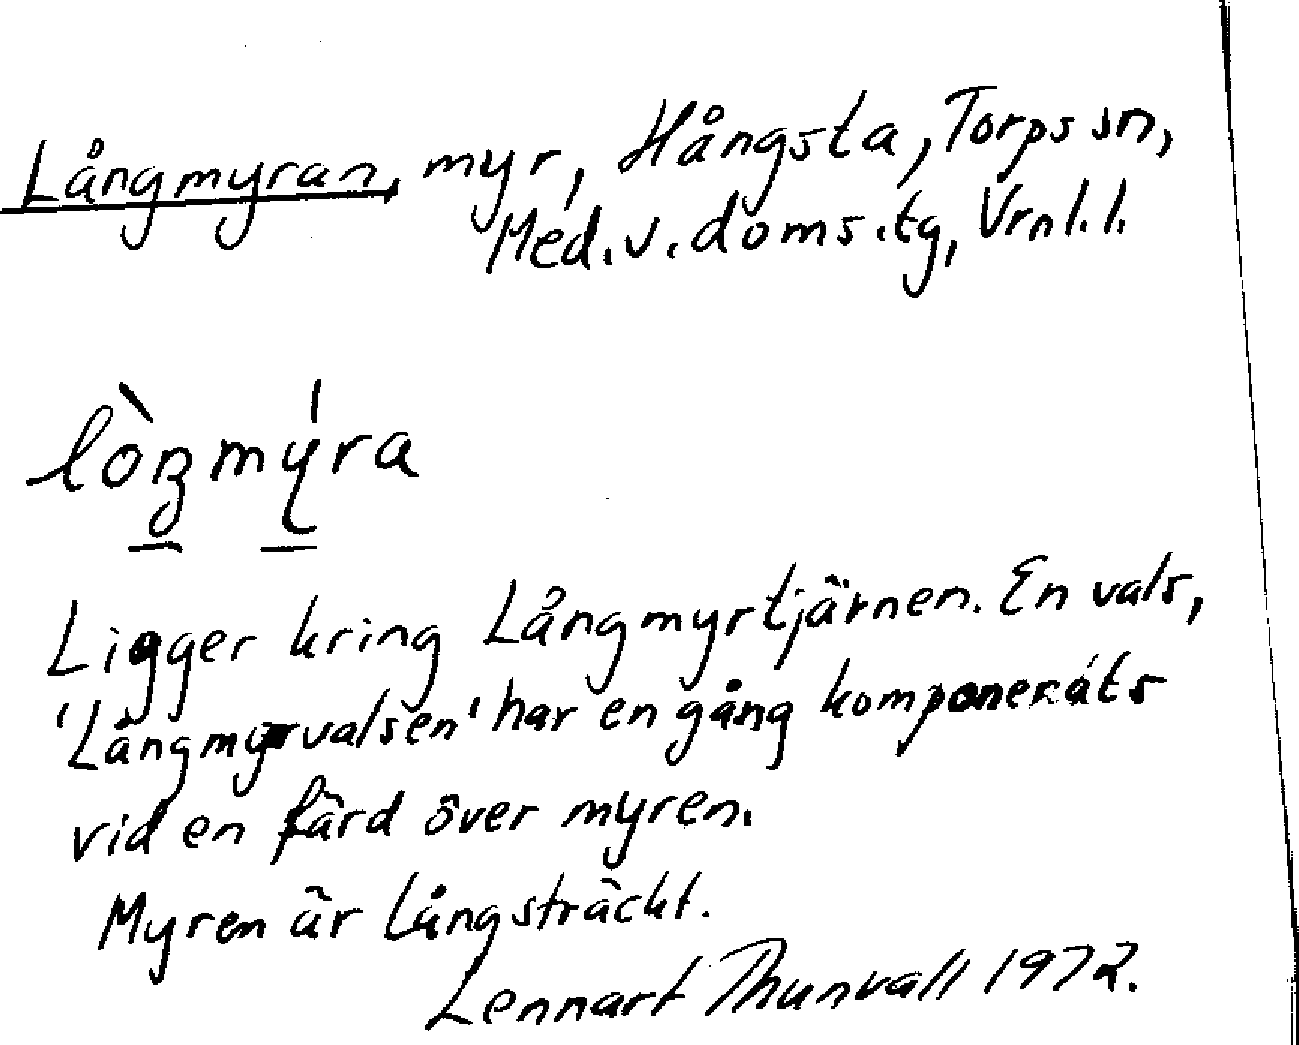 Långmyran, myr, Hångsta, Torps sn,
Med.v.doms.tg, Vrnl.l.
lòŋmy̍ra
Ligger kring Långmyrtjärnen. En vals,
'Långmyrvalsen' har en gång komponerats
vid en färd över myren.
Myren är långsträckt.
Lennart Thunvall 1972.